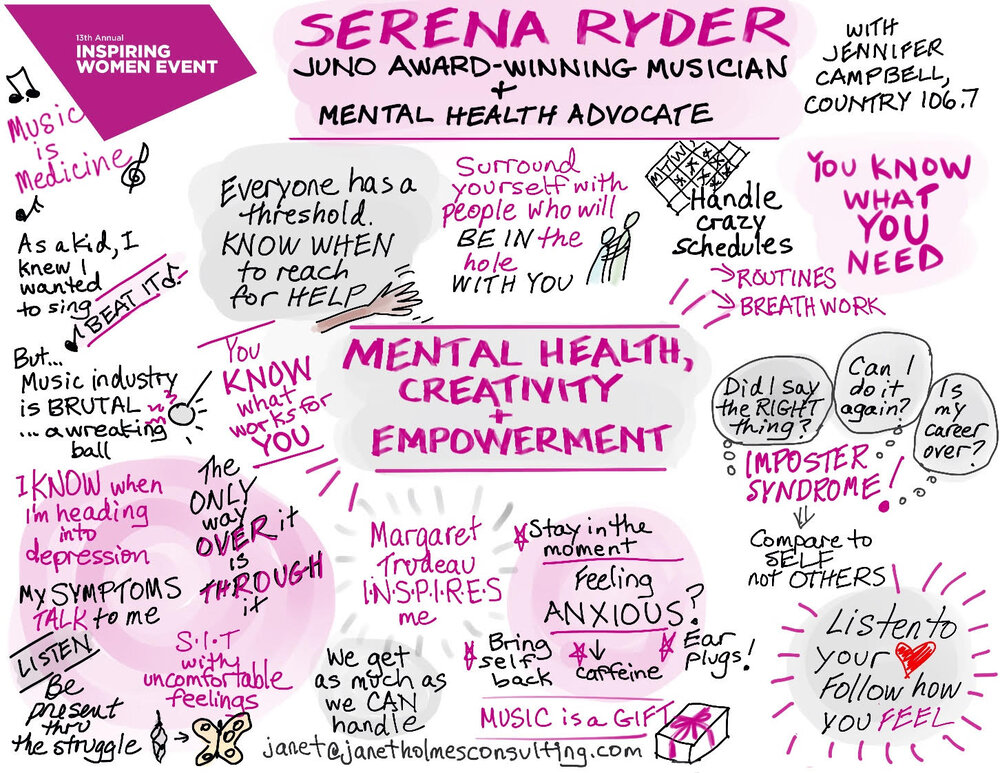 13th Annual
INSPIRING
WOMEN EVENT
SERENA RYDER
JUNO AWARD-WINNING MUSICIAN
+
MENTAL HEALTH ADVOCATE
WITH
JENNIFER
CAMPBELL,
COUNTRY 106.7
Music
is
Medicine
As a kid, I
knew I
wanted
to sing
BEAT IT
But...
Music industry
is BRUTAL
... a wreaking
ball
Everyone has a
threshold.
KNOW WHEN
to reach
for HELP
Surround
yourself with
people who will
BE IN the
hole
WITH YOU
M T W
Handle
crazy
schedules
ROUTINES
BREATH WORK
YOU KNOW
WHAT
YOU
NEED
You
KNOW
what
works for
YOU
MENTAL HEALTH,
CREATIVITY
+
EMPOWERMENT
Did I say
the RIGHT
thing?
Can I
do it
again?
Is
my
career
over?
IMPOSTER
SYNDROME!
Compare to
SELF
not OTHERS
I KNOW when
I'm heading
into
depression
My SYMPTOMS
TALK to me
LISTEN
Be
present
thru
the struggle
The
ONLY
way
OVER it
is
THROUGH
it
S.I.T
with
uncomfortable
feelings
Margaret
Trudeau
I.N.S.P.I.R.E.S
me
We get
as much as
we CAN
handle
Stay in the
moment
Feeling
ANXIOUS?
Bring
self
back
↓
caffeine
Ear
plugs!
MUSIC is a GIFT
Listen to
your ♥
Follow how
you FEEL
janet@janetholmesconsulting.com